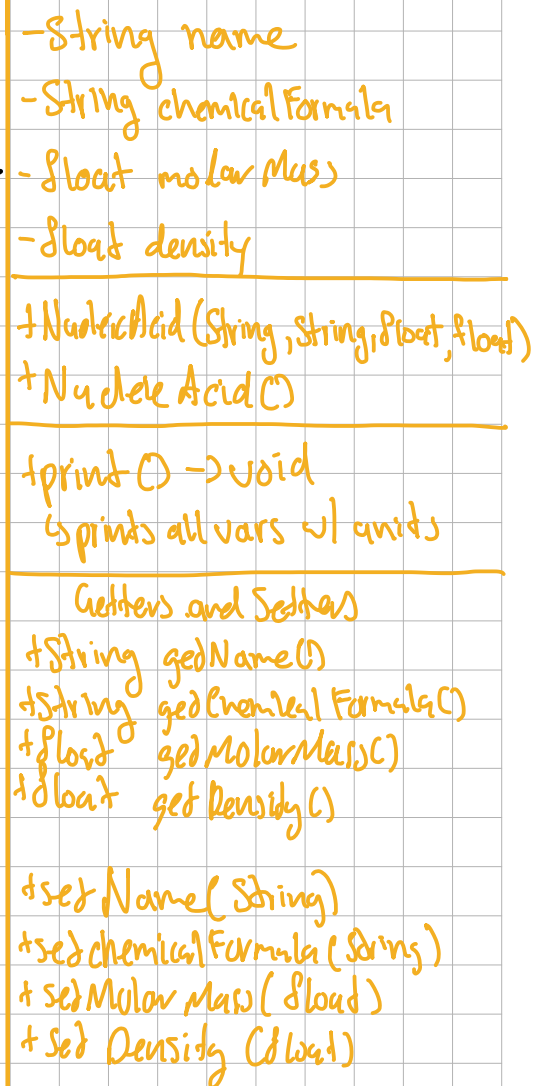 -String name
-String chemicalFormula
-float molarMass
-float density
+NucleicAcid(String, String, float, float)
+NucleicAcid()
+print() -> void
↳prints all vars w/ units
Getters and Setters
+String getName()
+String getChemicalFormula()
+float getMolarMass()
+float getDensity()
+setName(String)
+setchemicalFormula(String)
+setMolarMass(float)
+set Density (float)